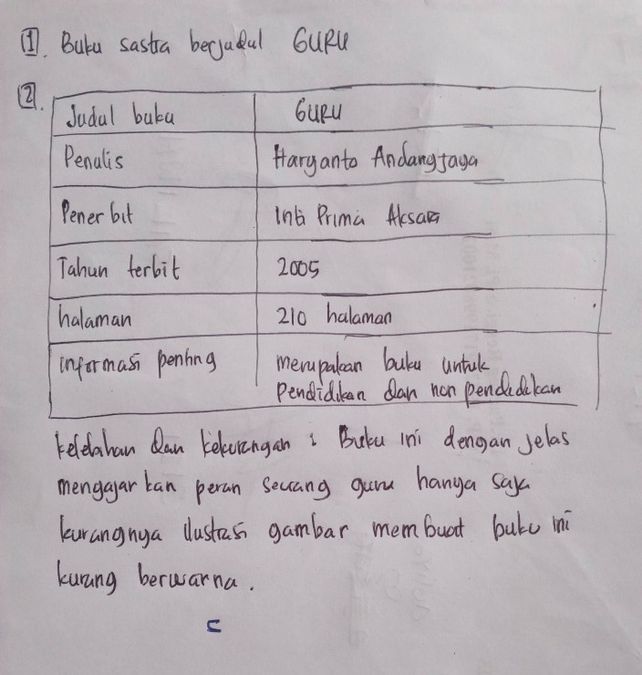 1. Buku sastra berjudul GURU
2.
Judul buku GURU
Penulis Haryanto Andangjaya
Penerbit Inti Prima Aksara
Tahun terbit 2005
halaman 210 halaman
informasi penting merupakan buku untuk
pendidikan dan non pendidikan
kelebahan dan kekurangan : Buku ini dengan jelas
mengajarkan peran seorang guru hanya saja
kurangnya ilustrasi gambar membuat buku ini
kurang berwarna.